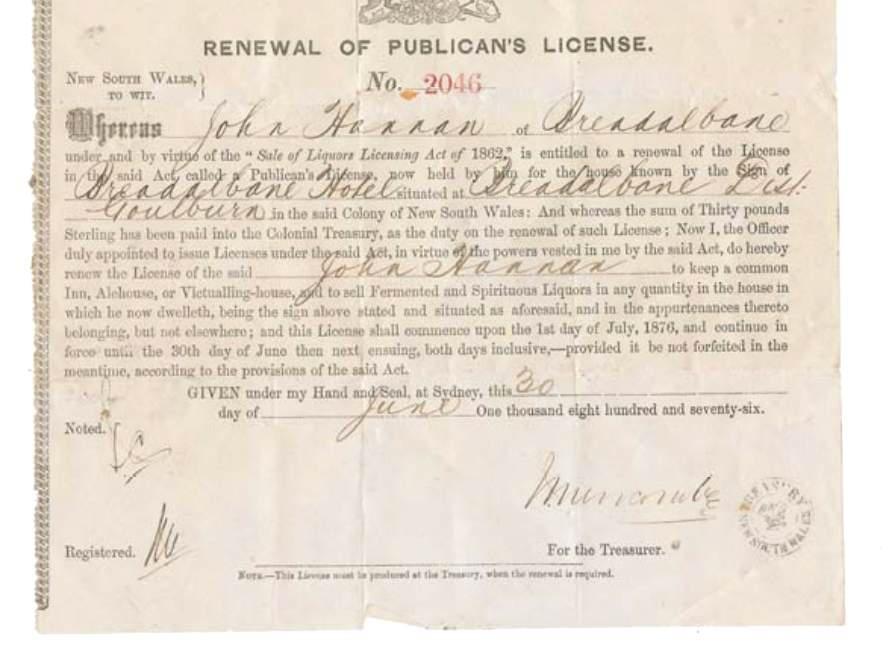 RENEWAL OF PUBLICAN'S LICENSE.
NEW SOUTH WALES, } No. 2046
TO WIT.
Whereas John Hannan of Breadalbane
under and by virtue of the "Sale of Liquors Licensing Act of 1862," is entitled to a renewal of the License
in the said Act, called a Publican's License, now held by him for the house known by the Sign of
Breadalbane Hotel situated at Breadalbane Dist:
Goulburn in the said Colony of New South Wales: And whereas the sum of Thirty pounds
Sterling has been paid into the Colonial Treasury, as the duty on the renewal of such License; Now I, the Officer
duly appointed to issue Licenses under the said Act, in virtue of the powers vested in me by the said Act, do hereby
renew the License of the said John Hannan to keep a common
Inn, Alehouse, or Victualling-house, and to sell Fermented and Spirituous Liquors in any quantity in the house in
which he now dwelleth, being the sign above stated and situated as aforesaid, and in the appurtenances thereto
belonging, but not elsewhere; and this License shall commence upon the 1st day of July, 1876, and continue in
force until the 30th day of June then next ensuing, both days inclusive,—provided it be not forfeited in the
meantime, according to the provisions of the said Act.
GIVEN under my Hand and Seal, at Sydney, this 30
day of June One thousand eight hundred and seventy-six.
Noted.
TREASURY
NEW SOUTH WALES
Registered.
For the Treasurer.
NOTE.—This License must be produced at the Treasury, when the renewal is required.